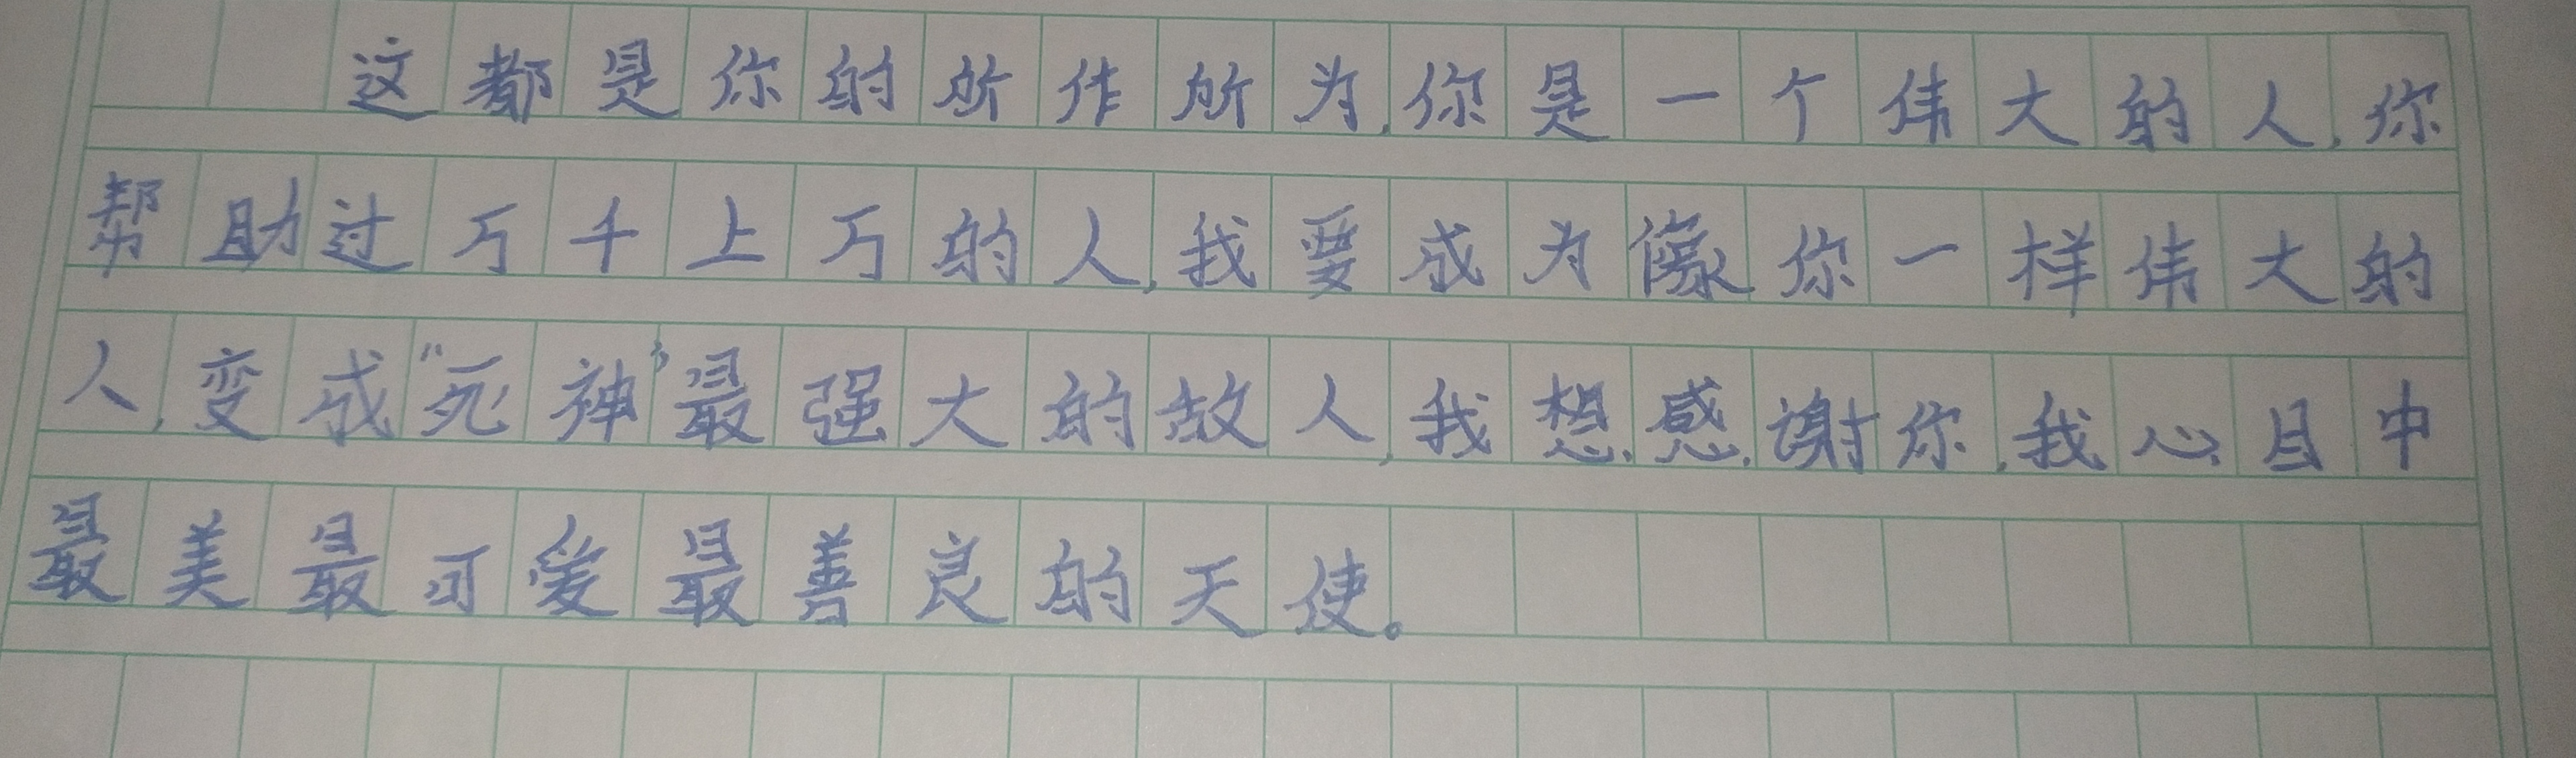 这都是你的所作所为,你是一个伟大的人,你
帮助过万千上万的人,我要成为像你一样伟大的
人,变成“死神”最强大的故人,我想感谢你,我心目中
最美最可爱最善良的天使。